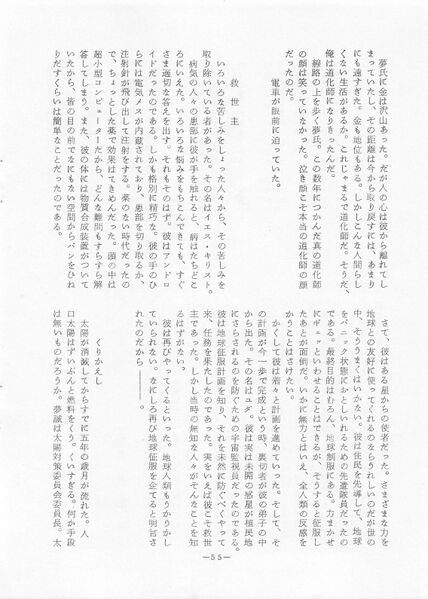 夢氏に金は沢山あった。だが人の心は彼から離れてし
まっていたし、その距離は今から取り戻すには、あまり
にも遠すぎた。金も地位もある。しかしこんな人間らし
くない生活があるか。これじゃまるで道化師だ。そうだ、
俺は道化師になりきったんだ。
線路の上を歩く夢氏。この数年につかんだ真の道化師
の顔は笑っていなかった。泣き顔こそ本当の道化師の顔
だったのだ。
電車が眼前に迫っていた。
救世主
いろいろな苦しみをしょった人々から、その苦しみを
取り除いている者があった。その名はイエス・キリスト。
病気の人々の患部に彼が手を触れると、病はたちどこ
ろにいえた。いろいろな悩みをもちこんできても、すぐ
さま適切な答えを出す。それもそのはず。彼はアンドロ
イドだったのである。しかも格別に精巧な。彼の手のひ
らには電気メスが内蔵されており、患部を切り取るか、
注射針が飛び出して注射をする。薬のない時代だったの
で、ちょっとした薬で効果はてきめんだった。頭の中は
超小型コンピューターだから、どんな難問もすらすら解
答してしまう。また、彼の体には物質合成装置がついて
いたから、皆の目の前でなにもない空間からパンをひね
りだすくらいは簡単なことだったのである。
さて、彼はある星からの使者だった。さまざまな力を
地球との友好に使ってくれるのならうれしいのだが世の
中、そううまくはいかない。彼は住民を先導して、地球
をパニック状態におとしいれるための先遣隊員だったの
である。最終目的はむろん、地球制服にある。力まかせ
にギュッといわせることはできるが、そうすると征服し
たあとが面倒だ。いかに無力とはいえ、全人類の反感を
かうことはさけたい。
かくして彼は着々と計画を進めていった。そして、そ
の計画が今一歩で完成という時、裏切者が彼の弟子の中
から出た。その名はユダ。彼は実は未開の惑星が植民地
にさらされるのを防ぐための宇宙監視員だったのである。
彼は地球征服計画を知り、それを未然に防ぐべくやって
来、任務を果たしたのであった。実をいえば彼こそ救世
主であった。しかし当時の無知な人々がそんなことを知
るはずがない。
彼は再びやってくるといった。地球人類もうかうかし
ていられない。なにしろ再び地球征服を企てると明言さ
れたのだから――
くりかえし
太陽が消滅してからすでに五年の歳月が流れた。人
口太陽はずいぶんと燃料をくう。くいすぎる。何か手段
は無いものだろうか。夢誠は太陽対策委員会委員長。太
―55―